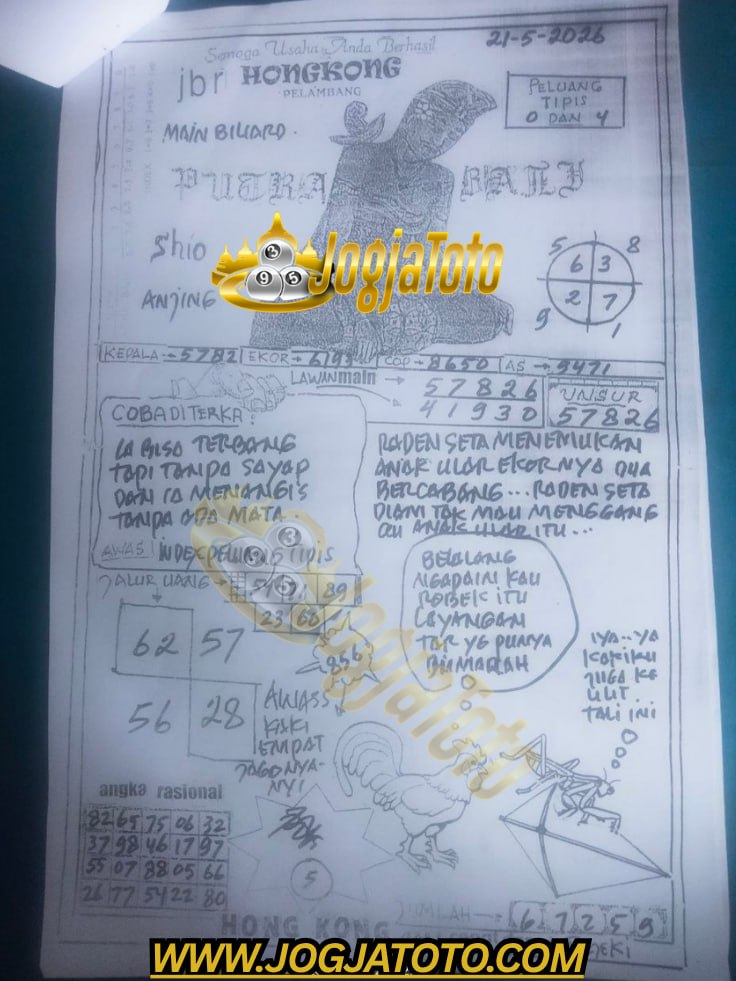 Semoga Usaha Anda Berhasil
21-5-2026
jbr HONGKONG
PELAMBANG
PELUANG
TIPIS
0 DAN 4
MAIN BILIARD.
PUTRA BALI
Shio
ANJING
JogjaToto
3
9 5
5 8
6 3
2 7
9 1
KEPALA → 5782 EKOR → 6193 COP → 8650 AS → 9471
LAWAN main → 57826
41930
UNSUR
57826
COBA DITERKA!
IA BISA TERBANG
TAPI TANPA SAYAP
DAN IA MENANGIS
TANPA ADA MATA.
AWAS INDEX PELUANG TIPIS
RADEN SETA MENEMUKAN
ANAK ULAR EKORNYA DUA
BERCABANG... RADEN SETA
DIAM TAK MAU MENGGANG
GU ANAK ULAR ITU...
JALUR UANG →
89
23 68
62 57
56 28
856
BELALANG
NGAPAIN KAU
ROBEK ITU
LAYANGAN
TAR YG PUNYA
MARAH
IYA..YA
KAKIKU
JUGA KE
LILIT.
TALI INI
AWASS
KAKI
EMPAT
JAGONYA-
NYI
JogjaToto
angka rasional
82 65 75 06 32
37 98 46 17 97
55 07 88 05 66
26 77 54 22 80
5
JUMLAH → 6 7 2 5 9
HONG KONG
WWW.JOGJATOTO.COM